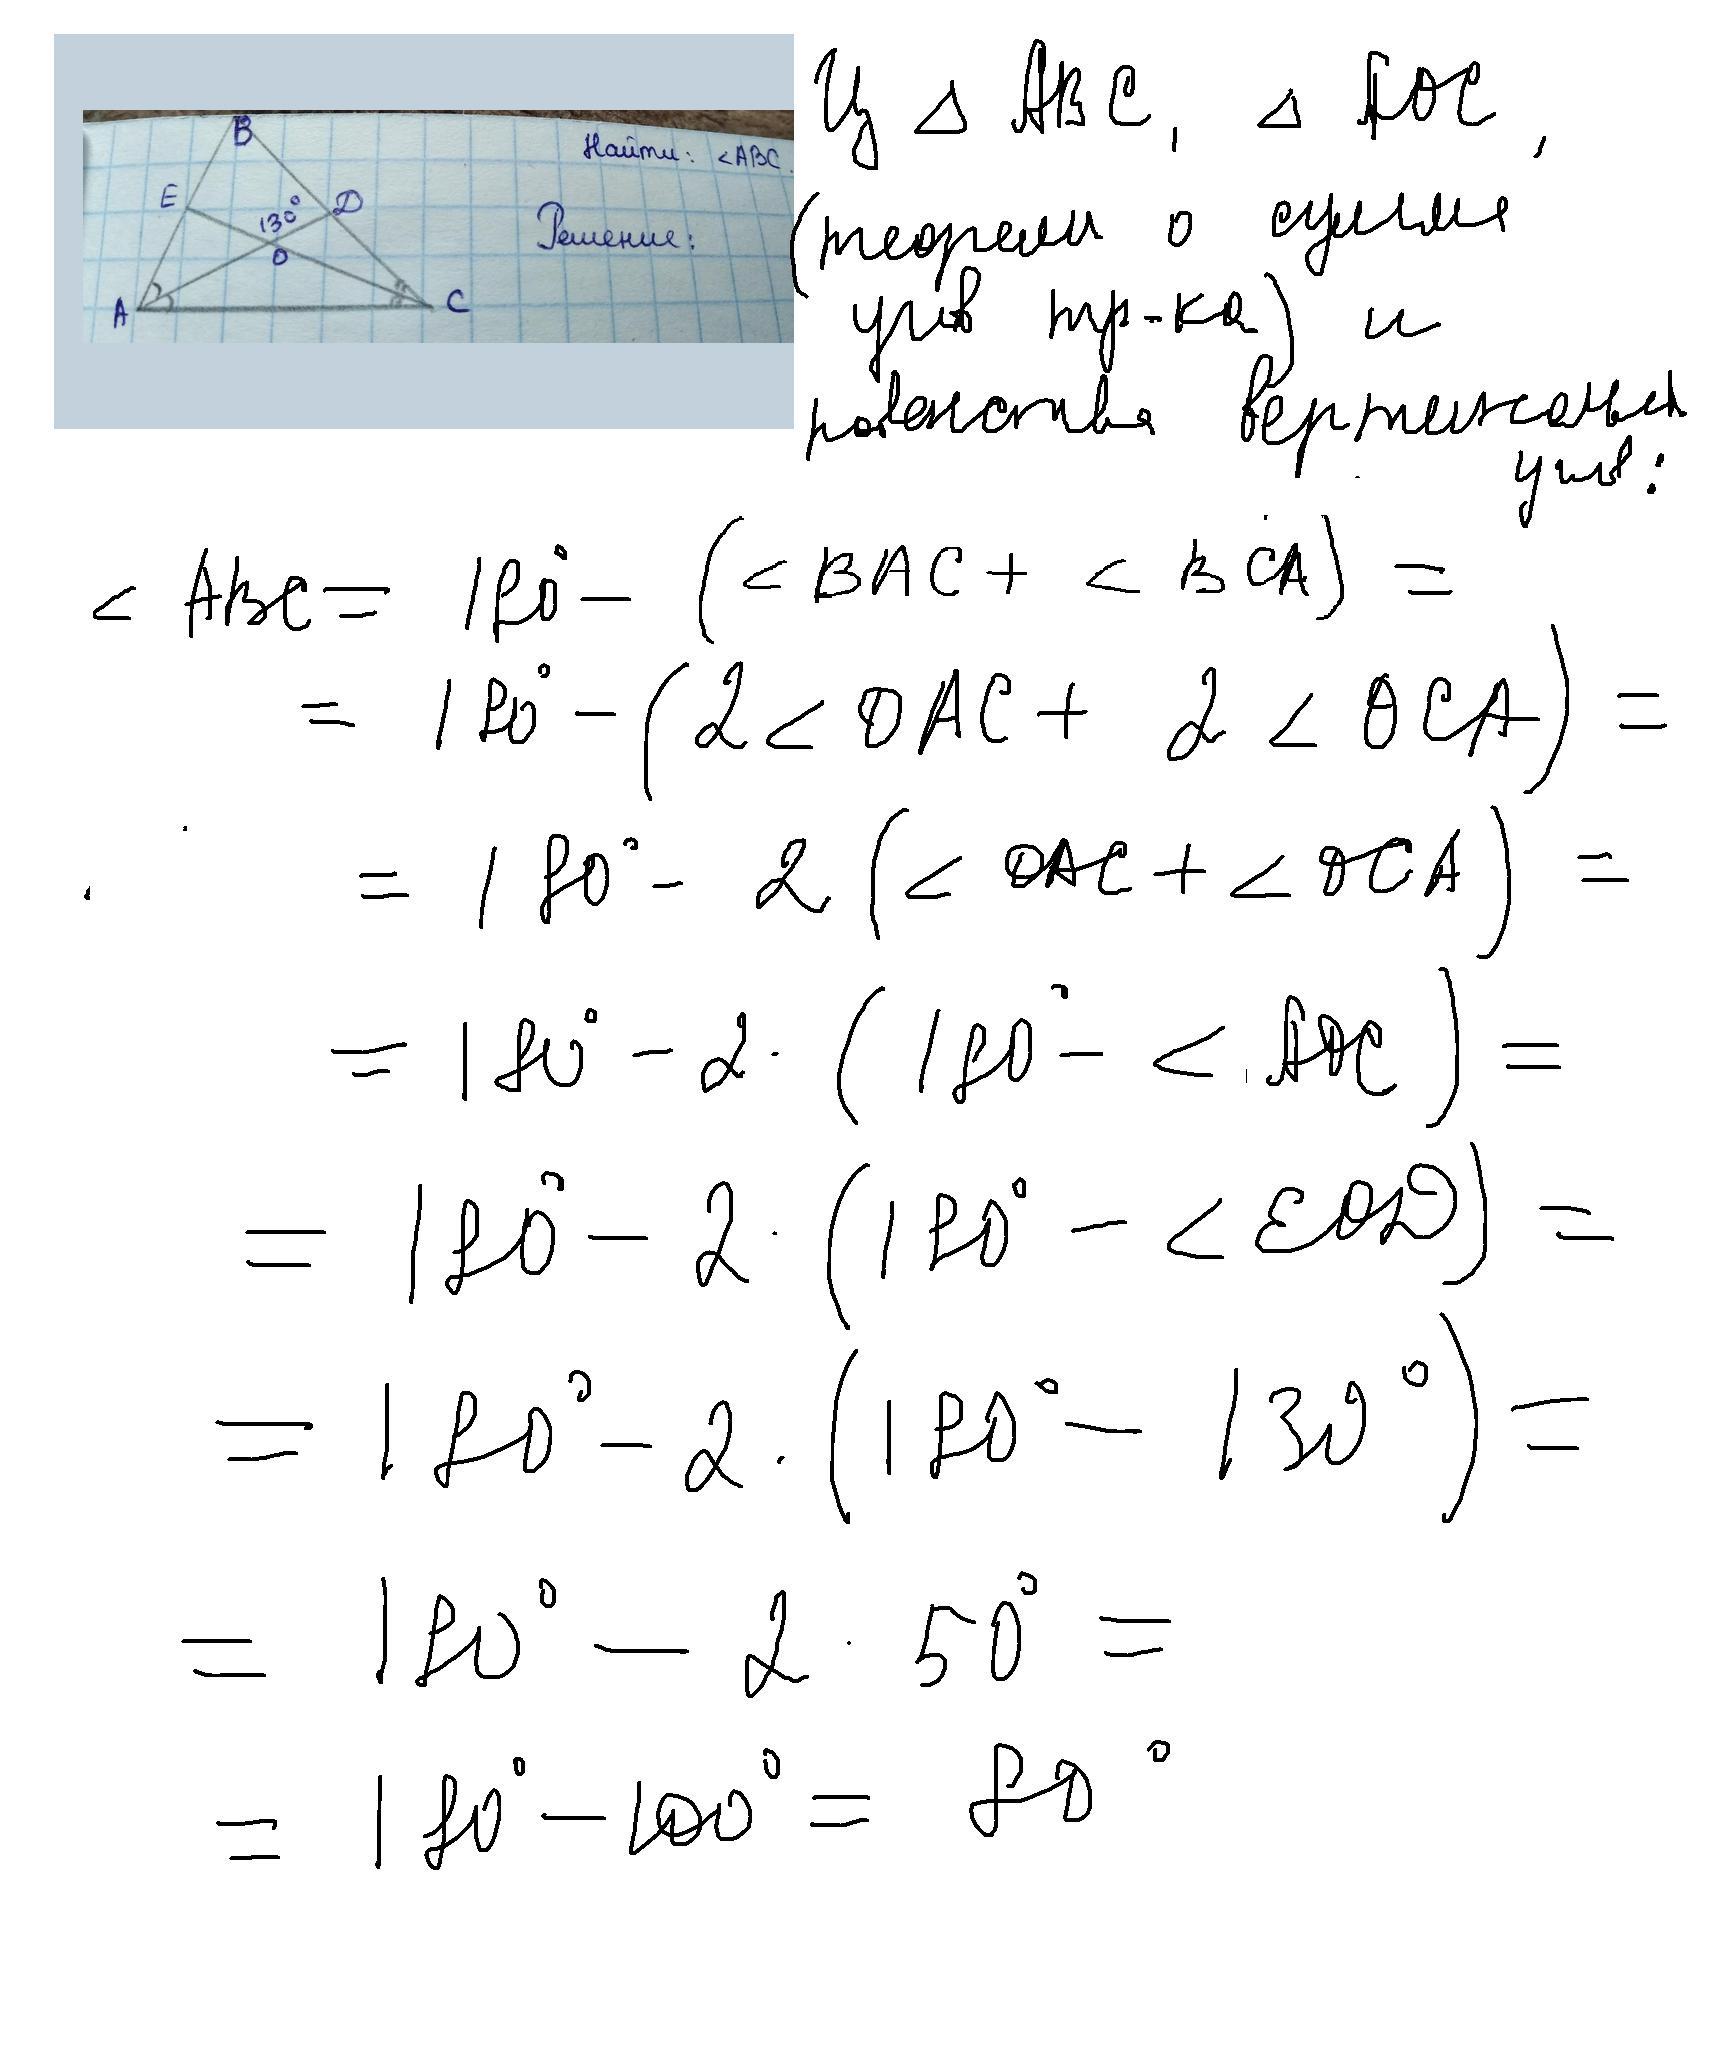 B
E
130°
D
O
A
C
Найти: <ABC.
Решение:
Из △ ABC, △ AOC,
(теоремы о сумме
углов тр-ка) и
равенства вертикальных
углов:
< ABC = 180° - (< BAC + < BCA) =
= 180° - (2 < OAC + 2 < OCA) =
= 180° - 2 (< OAC + < OCA) =
= 180° - 2 · (180° - < AOC) =
= 180° - 2 · (180° - < EOD) =
= 180° - 2 · (180° - 130°) =
= 180° - 2 · 50° =
= 180° - 100° = 80°